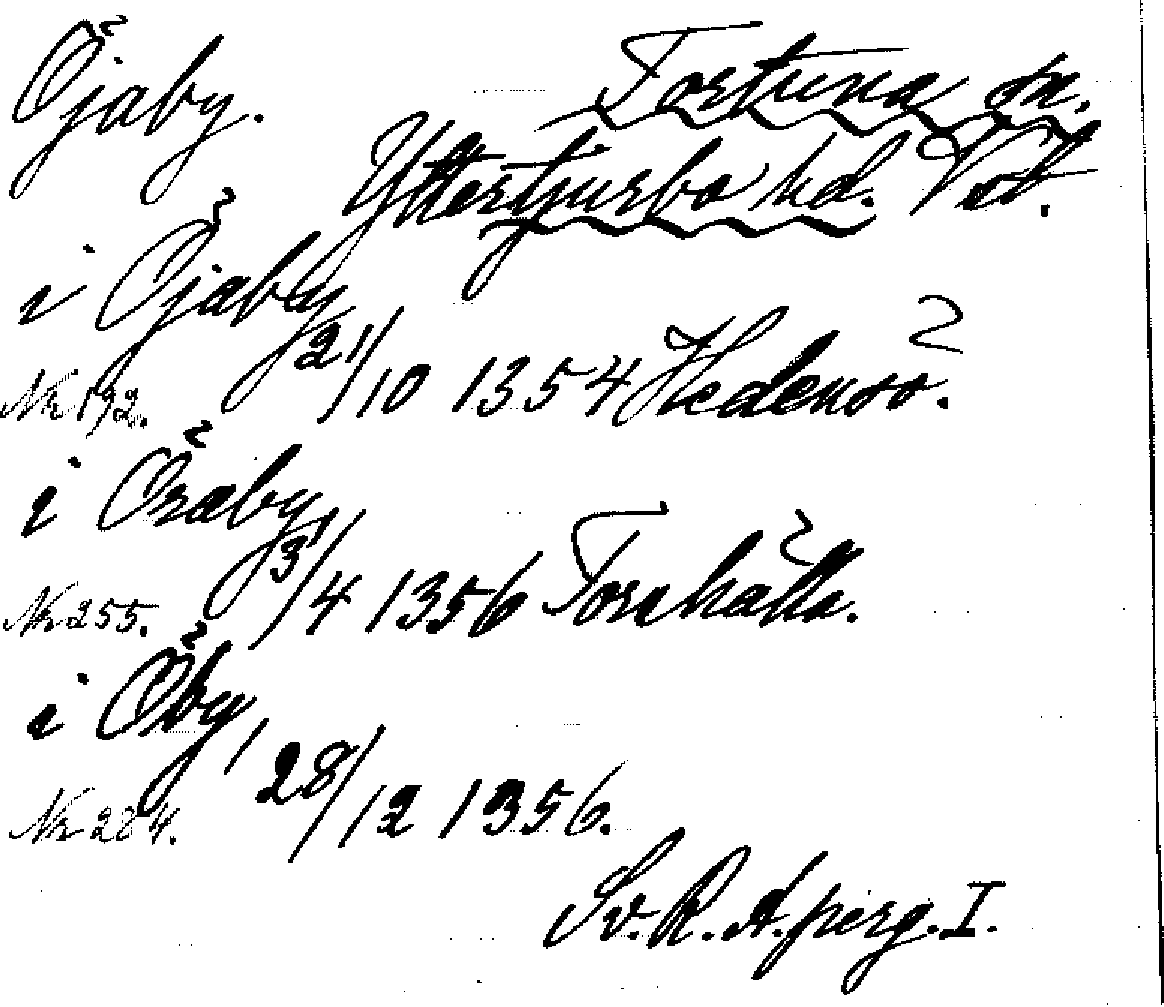 Öjaby. Tortuna sn.
Yttertjurbo hd. Vstl.
i Öjaby
21/10 1354 Hedensö.
Nr 192.
i Öraby,
3/4 1356 Torshälla.
Nr 255.
i Öby,
28/12 1356.
Nr 284.
Sv. R. A. perg. I.